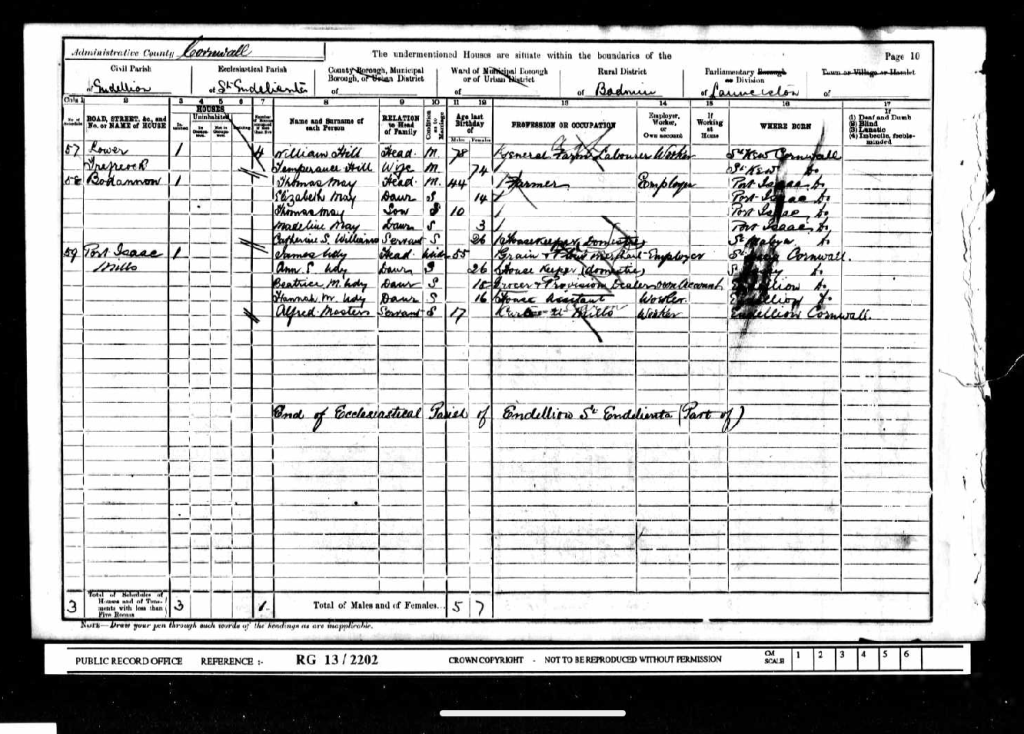 Administrative County Cornwall
The undermentioned Houses are situate within the boundaries of the
Page 10
Civil Parish
of Endellion
Ecclesiastical Parish
of St Endelienta
County Borough, Municipal Borough, or Urban District
Ward of Municipal Borough or of Urban District
Rural District
of Bodmin
Parliamentary Borough or Division
of Launceston
Town or Village or Hamlet
of
Cols. 1 2 3 4 5 6 7 8 9 10 11 12 13 14 15 16 17
No. of Schedule
ROAD, STREET, &c., and No. or NAME of HOUSE
HOUSES
Inhabited
Uninhabited
In Occupation
Not in Occupation
Building
Name and Surname of each Person
RELATION to Head of Family
Condition as to Marriage
Age last Birthday of
Males Females
PROFESSION OR OCCUPATION
Employer, Worker, or Own account
If Working at Home
WHERE BORN
If
(1) Deaf and Dumb
(2) Blind
(3) Lunatic
(4) Imbecile, feeble-minded
57 Lower Trefreock 1 4 William Hill Head M 78 General Farm Labourer Worker St Kew Cornwall
Temperance Hill Wife M 74 St Kew Do
58 Bodannon 1 Thomas May Head M 44 Farmer Employer Port Isaac Do
Elizabeth May Daur S 14 Port Isaac Do
Thomas May Son S 10 Port Isaac Do
Madeline May Daur S 3 Port Isaac Do
Catherine S. Williams Servant S 26 Housekeeper Domestic St Do
59 Port Isaac Mills 1 James Udy Head Widr 55 Grain & Merchant Employer St Cornwall.
Ann E. Udy Daur S 26 House Keeper (domestic) St Do
Beatrice M. Udy Daur S 18 Grocer & Provision Dealer own Account Endellion Do
Hannah M. Udy Daur S 16 House Assistant Worker Endellion Do
Alfred Masters Servant S 17 Mills Worker Endellion Cornwall.
End of Ecclesiastical Parish of Endellion St Endelienta (Part of)
3 Total of Schedules of Houses and of Tenements with less than Five Rooms 3 1 Total of Males and of Females... 5 7
NOTE—Draw your pen through such words of the headings as are inapplicable.
PUBLIC RECORD OFFICE REFERENCE :- RG 13 / 2202 CROWN COPYRIGHT - NOT TO BE REPRODUCED WITHOUT PERMISSION CM SCALE 1 2 3 4 5 6